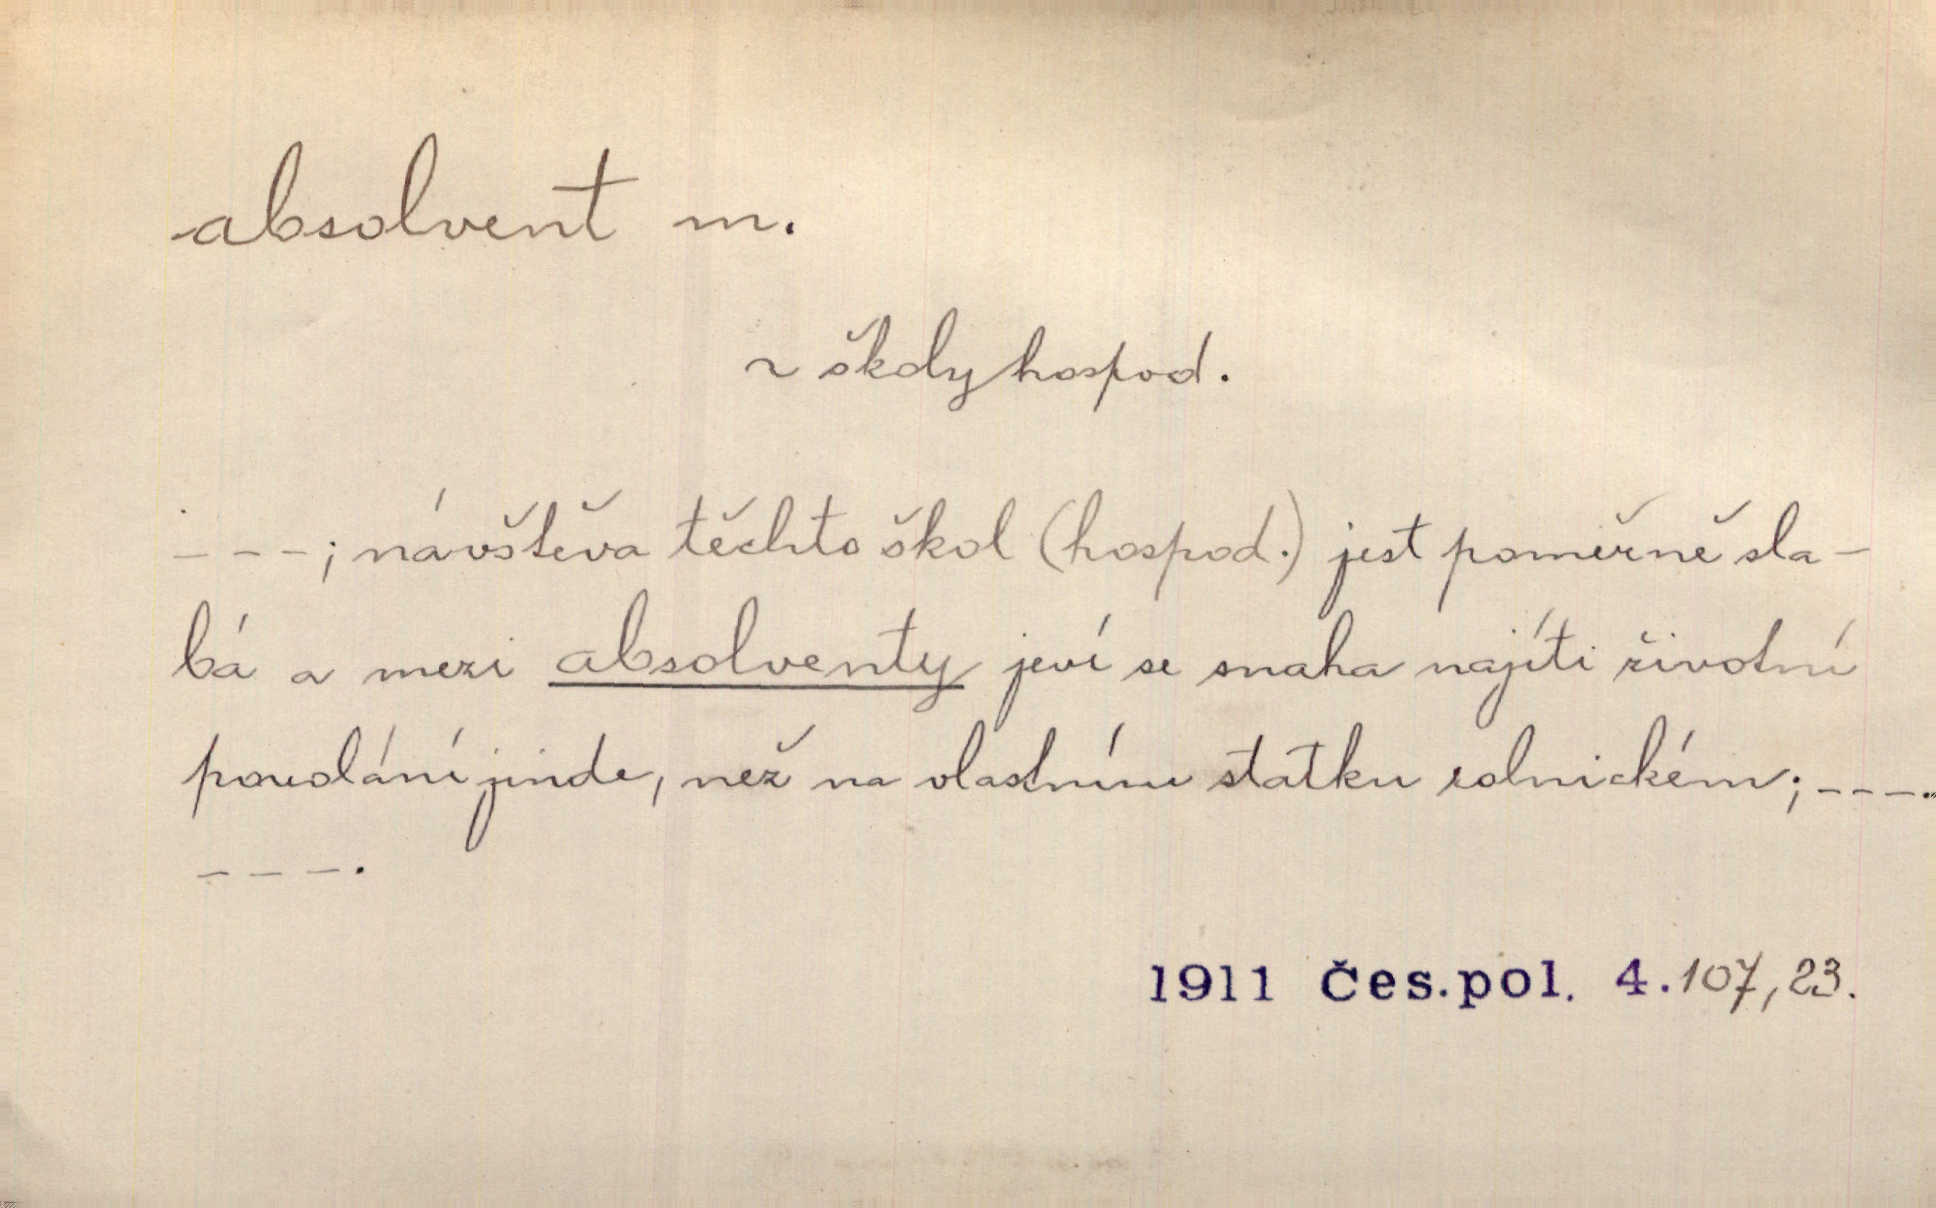 absolvent m.
~ školy hospod.
- - - ; návštěva těchto škol (hospod.) jest poměrně sla-
bá a mezi absolventy jeví se snaha najíti životní
povolání jinde, než na vlastním statku rolnickém; - - - .
- - - .
1911 Čes.pol. 4.107,23.